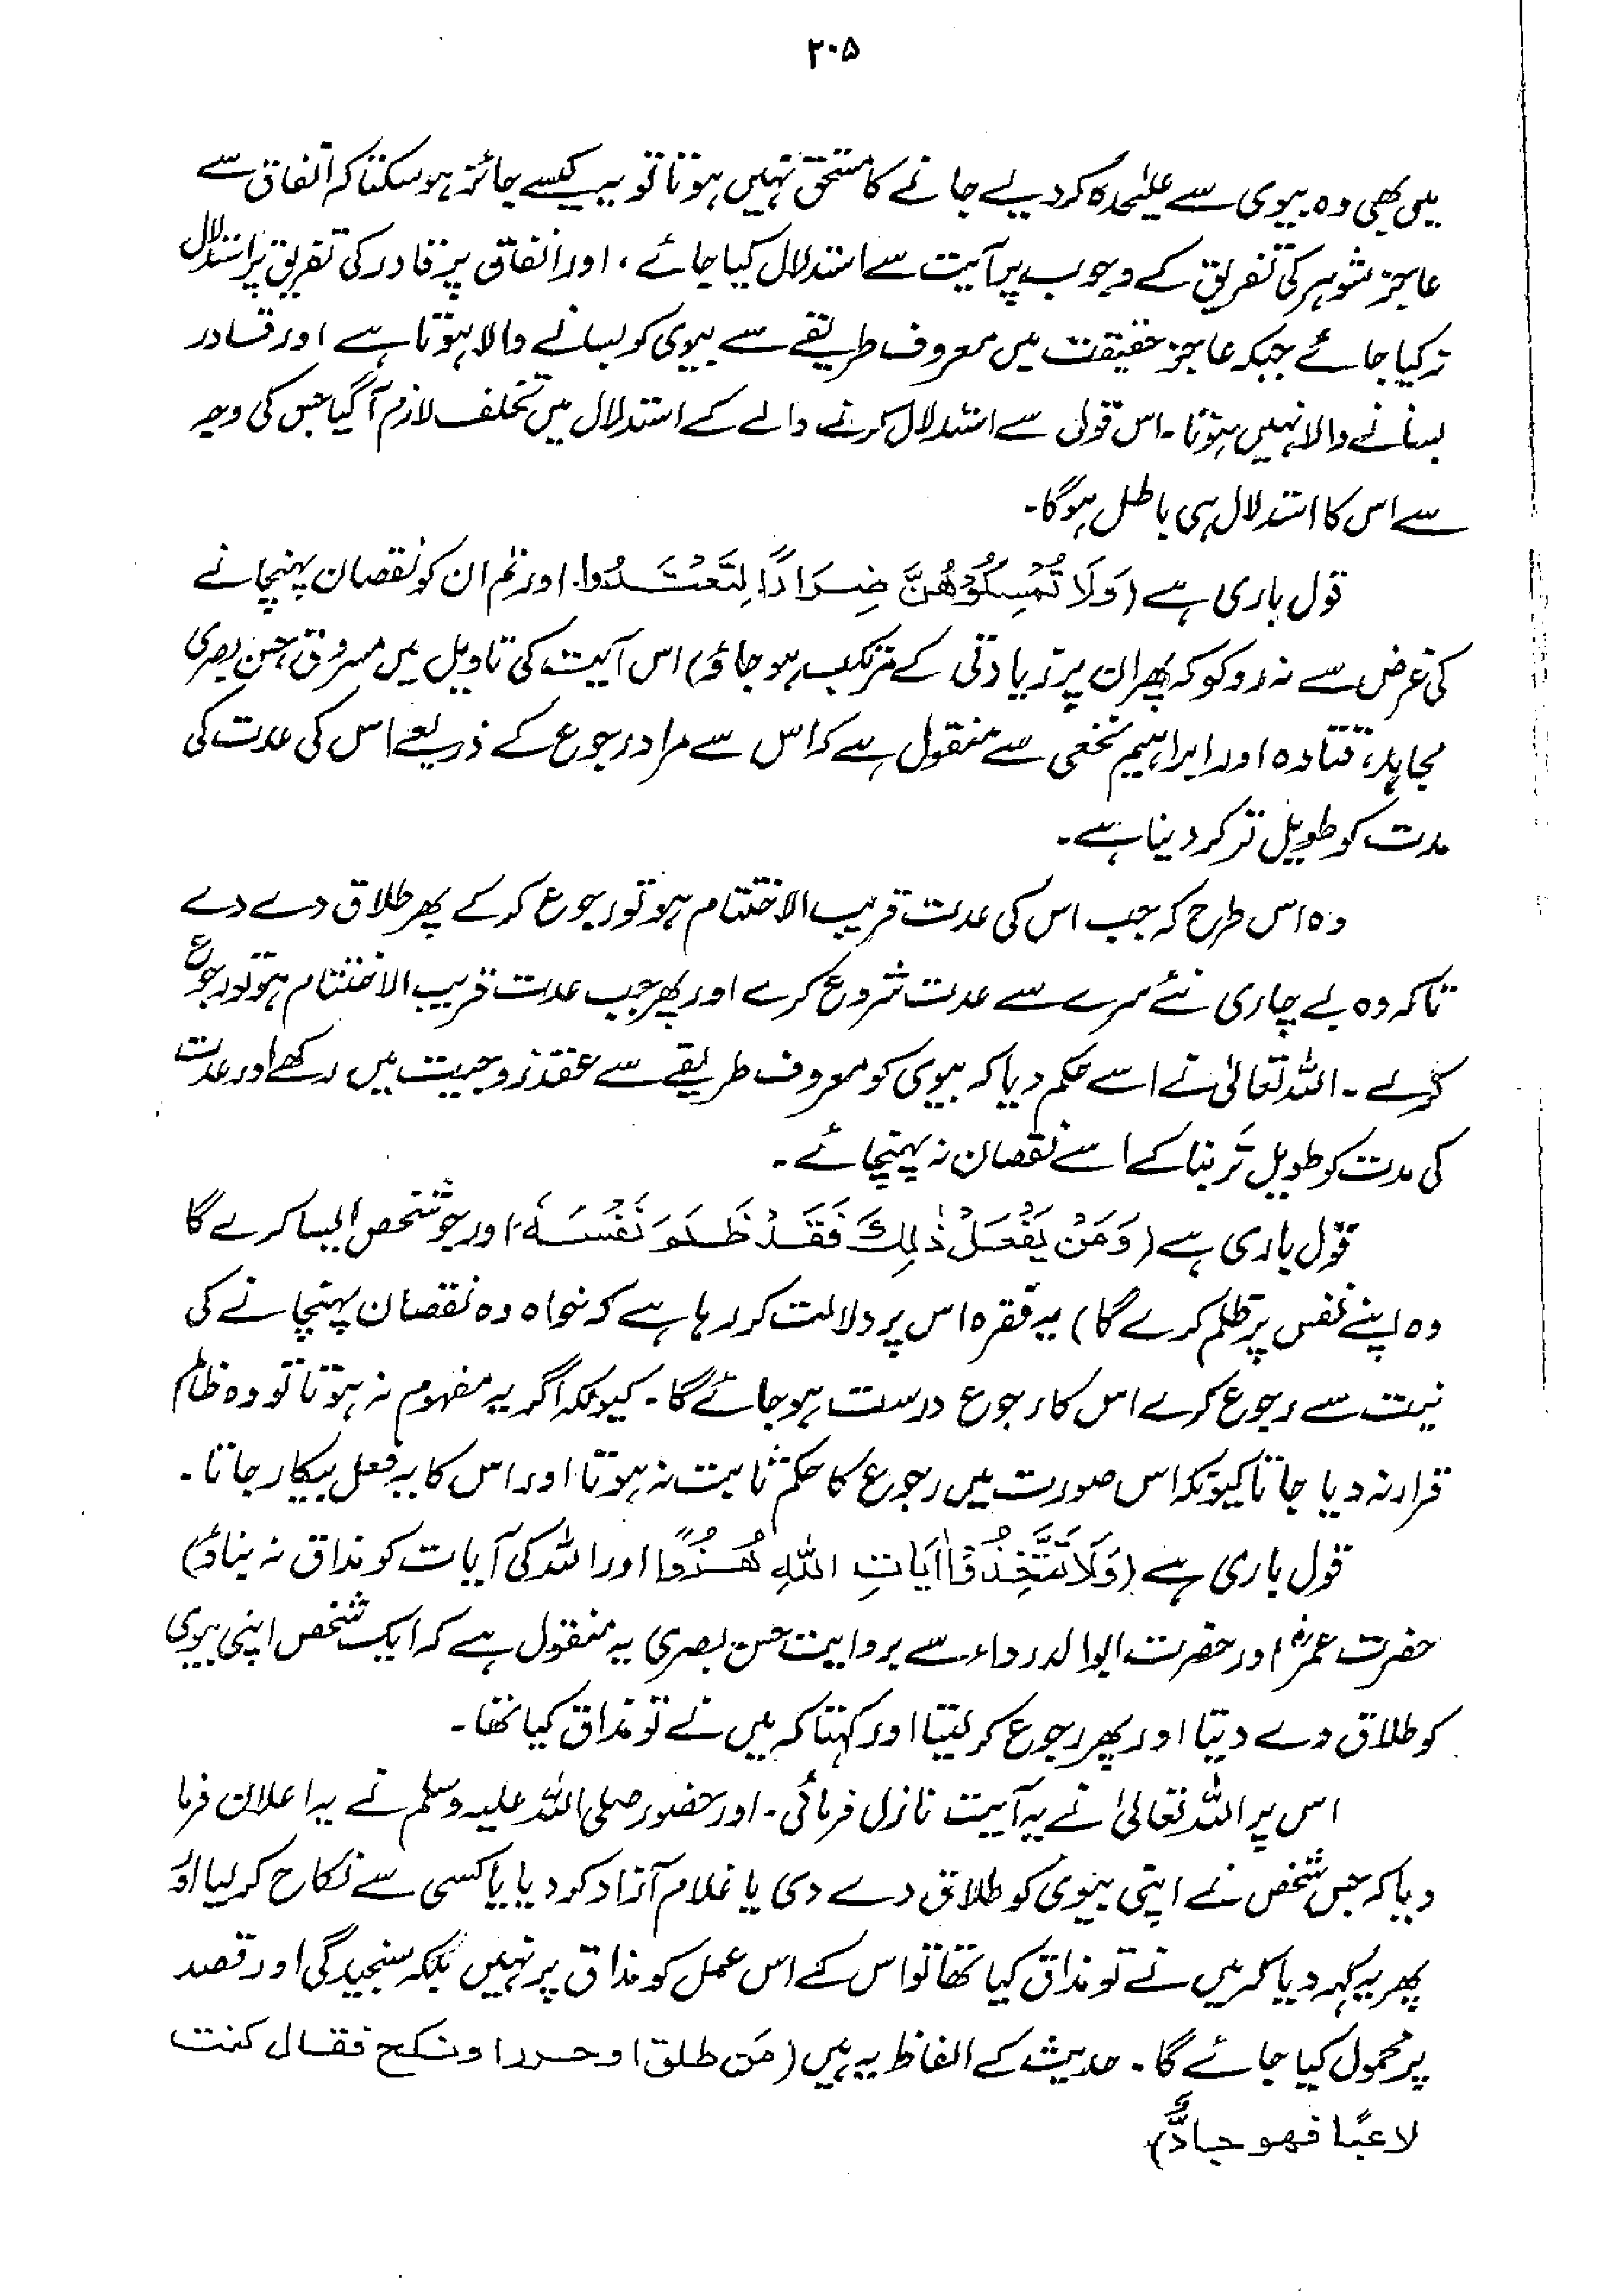 ۲۰۵
میں بھی وہ بیوی سے علیٰحدہ کر دیے جانے کا مستحق نہیں ہوتا تو یہ کیسے جائز ہو سکتا کہ انفاق سے
عاجز شوہر کی تفریق کے وجوب پر آیت سے استدلال کیا جائے، اور انفاق پر قادر کی تفریق پر استدلال
نہ کیا جائے جبکہ عاجز حقیقت میں معروف طریقے سے بیوی کو بسانے والا ہوتا ہے اور قادر
بسانے والا نہیں ہوتا۔ اس قول سے استدلال کرنے والے کے استدلال میں تخلف لازم آ گیا جس کی وجہ
سے اس کا استدلال ہی باطل ہوگا۔
قول باری ہے (وَلَا تُمْسِكُوْهُنَّ ضِرَارًا لِتَعْتَدُوا۔ اور تم ان کو نقصان پہنچانے
کی غرض سے نہ روکو کہ پھر ان پر زیادتی کے مرتکب ہو جاؤ) اس آیت کی تاویل میں مسروق، حسن بصری
مجاہد، قتادہ اور ابراہیم نخعی سے منقول ہے کہ اس سے مراد رجوع کے ذریعے اس کی عدت کی
مدت کو طویل تر کر دینا ہے۔
وہ اس طرح کہ جب اس کی عدت قریب الاختتام ہو تو رجوع کر کے پھر طلاق دے دے
تاکہ وہ بے چاری نئے سرے سے عدت شروع کرے اور پھر جب عدت قریب الاختتام ہو تو رجوع
کرلے۔ اللہ تعالیٰ نے اسے حکم دیا کہ بیوی کو معروف طریقے سے عقد زوجیت میں رکھے اور عدت
کی مدت کو طویل تر بنا کے اسے نقصان نہ پہنچائے۔
قول باری ہے (وَمَنْ يَفْعَلْ ذٰلِكَ فَقَدْ ظَلَمَ نَفْسَهٗ، اور جو شخص ایسا کرے گا
وہ اپنے نفس پر ظلم کرے گا) یہ فقرہ اس پر دلالت کر رہا ہے کہ خواہ وہ نقصان پہنچانے کی
نیت سے رجوع کرے اس کا رجوع درست ہو جائے گا۔ کیونکہ اگر یہ مفہوم نہ ہوتا تو وہ ظالم
قرار نہ دیا جاتا کیونکہ اس صورت میں رجوع کا حکم ثابت نہ ہوتا اور اس کا یہ فعل بیکار جاتا۔
قول باری ہے (وَلَا تَتَّخِذُوْا اٰيَاتِ اللهِ هُزُوًا اور اللہ کی آیات کو مذاق نہ بناؤ)
حضرت عمرؓ اور حضرت ابوالدرداء سے بروایت حسن بصری یہ منقول ہے کہ ایک شخص اپنی بیوی
کو طلاق دے دیتا اور پھر رجوع کر لیتا اور کہتا کہ میں نے تو مذاق کیا تھا۔
اس پر اللہ تعالیٰ نے یہ آیت نازل فرمائی۔ اور حضور صلی اللہ علیہ وسلم نے یہ اعلان فرما
دیا کہ جس شخص نے اپنی بیوی کو طلاق دے دی یا غلام آزاد کر دیا یا کسی سے نکاح کر لیا اور
پھر یہ کہہ دیا کہ میں نے تو مذاق کیا تھا تو اس کے اس عمل کو مذاق پر نہیں بلکہ سنجیدگی اور قصد
پر محمول کیا جائے گا۔ حدیث کے الفاظ یہ ہیں (مَن طلق او حرر او نکح فقال کنت
لاعبًا فهو جادٌّ)